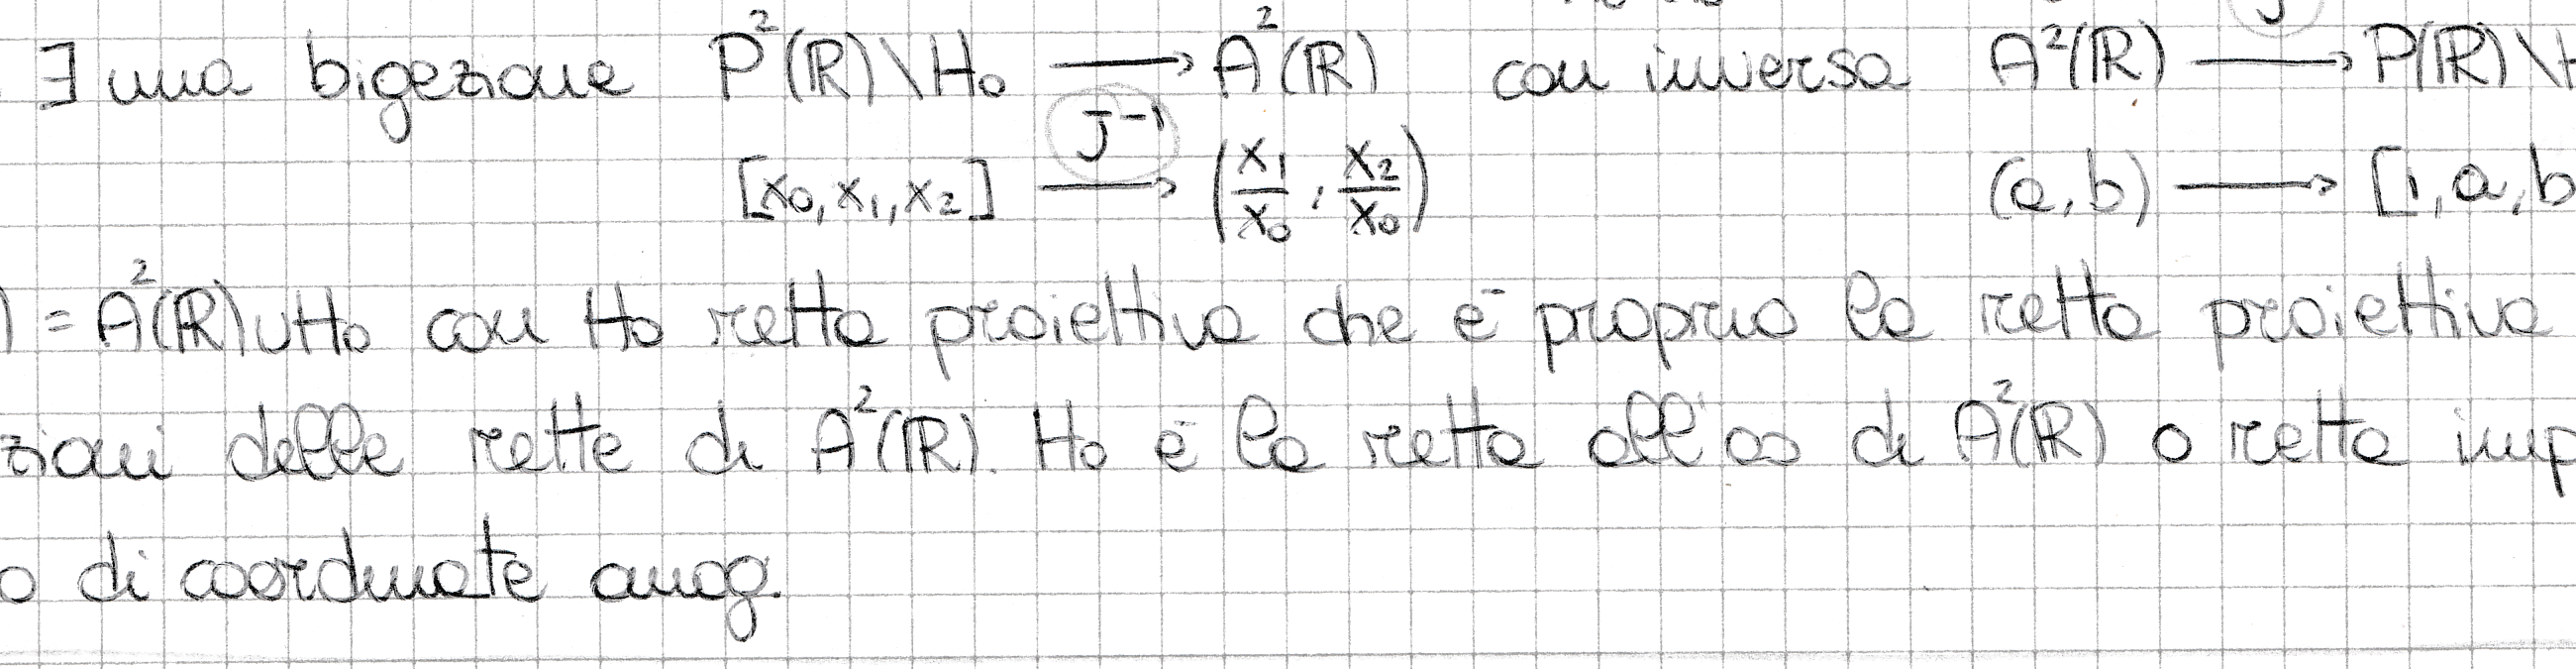 ∃ una bigezione P²(ℝ)\H₀ → A²(ℝ) con inversa A²(ℝ) → P(ℝ)\H
[x₀, x₁, x₂] → J⁻¹ (x₁/x₀, x₂/x₀) (a, b) → [1, a, b
) = A²(ℝ)∪H₀ con H₀ retta proiettiva che è proprio la retta proiettiva
zioni delle rette di A²(ℝ). H₀ è la retta all'∞ di A²(ℝ) o retta imp
o di coordinate omog.